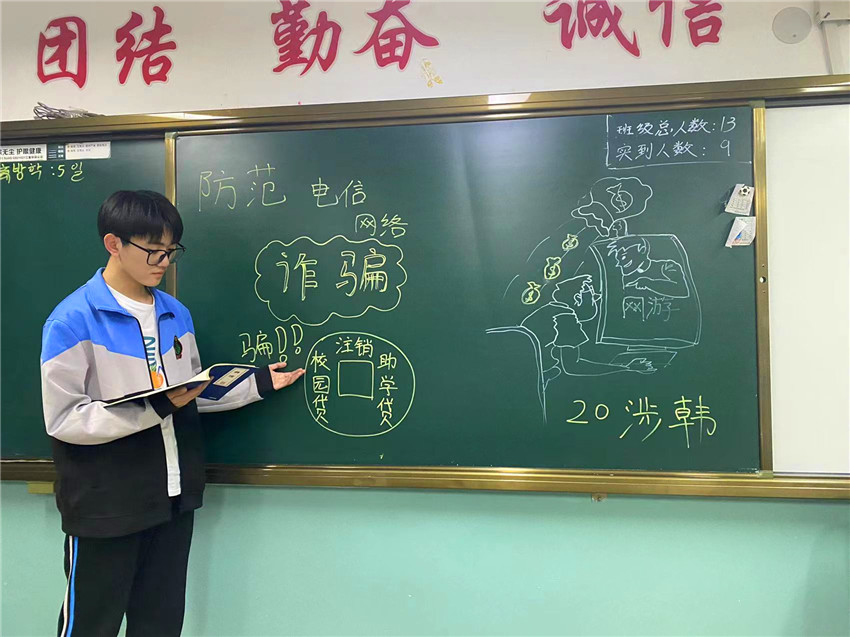 团结 勤奋 诚信
无尘 护眼健康
:5日
班级总人数:13
实到人数: 9
防范 电信
网络
诈骗
骗!!
注销
校园贷
助学贷
网游
20 涉韩